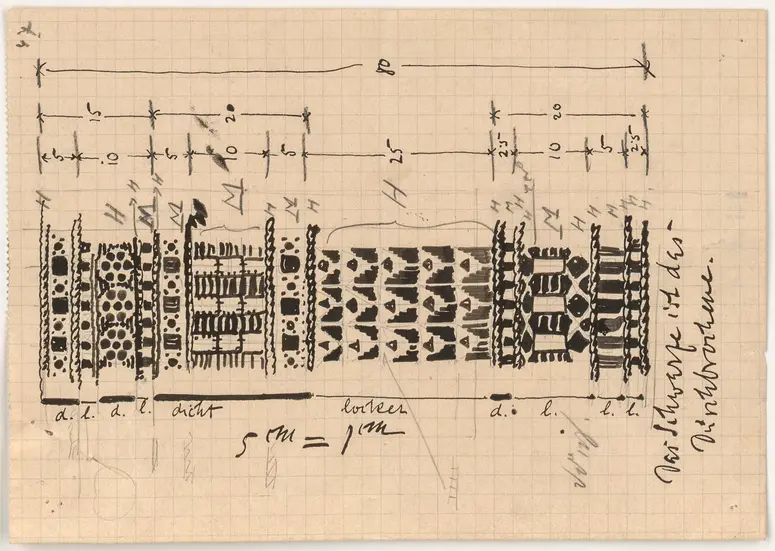 80
15 20 20
5 10 5 10 5 25 2.5 10 5 2.5
H H M M M H H H M H H
d. l. d. l. dicht locker d. l. l. l.
5 cm = 1 cm
Das Schwarze ist das
Durchbrochene.